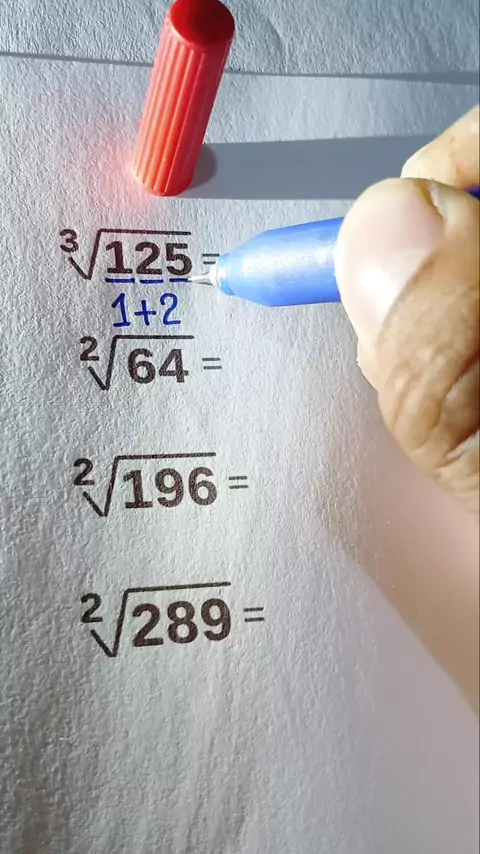 3√125 =
1+2
2√64 =
2√196 =
2√289 =